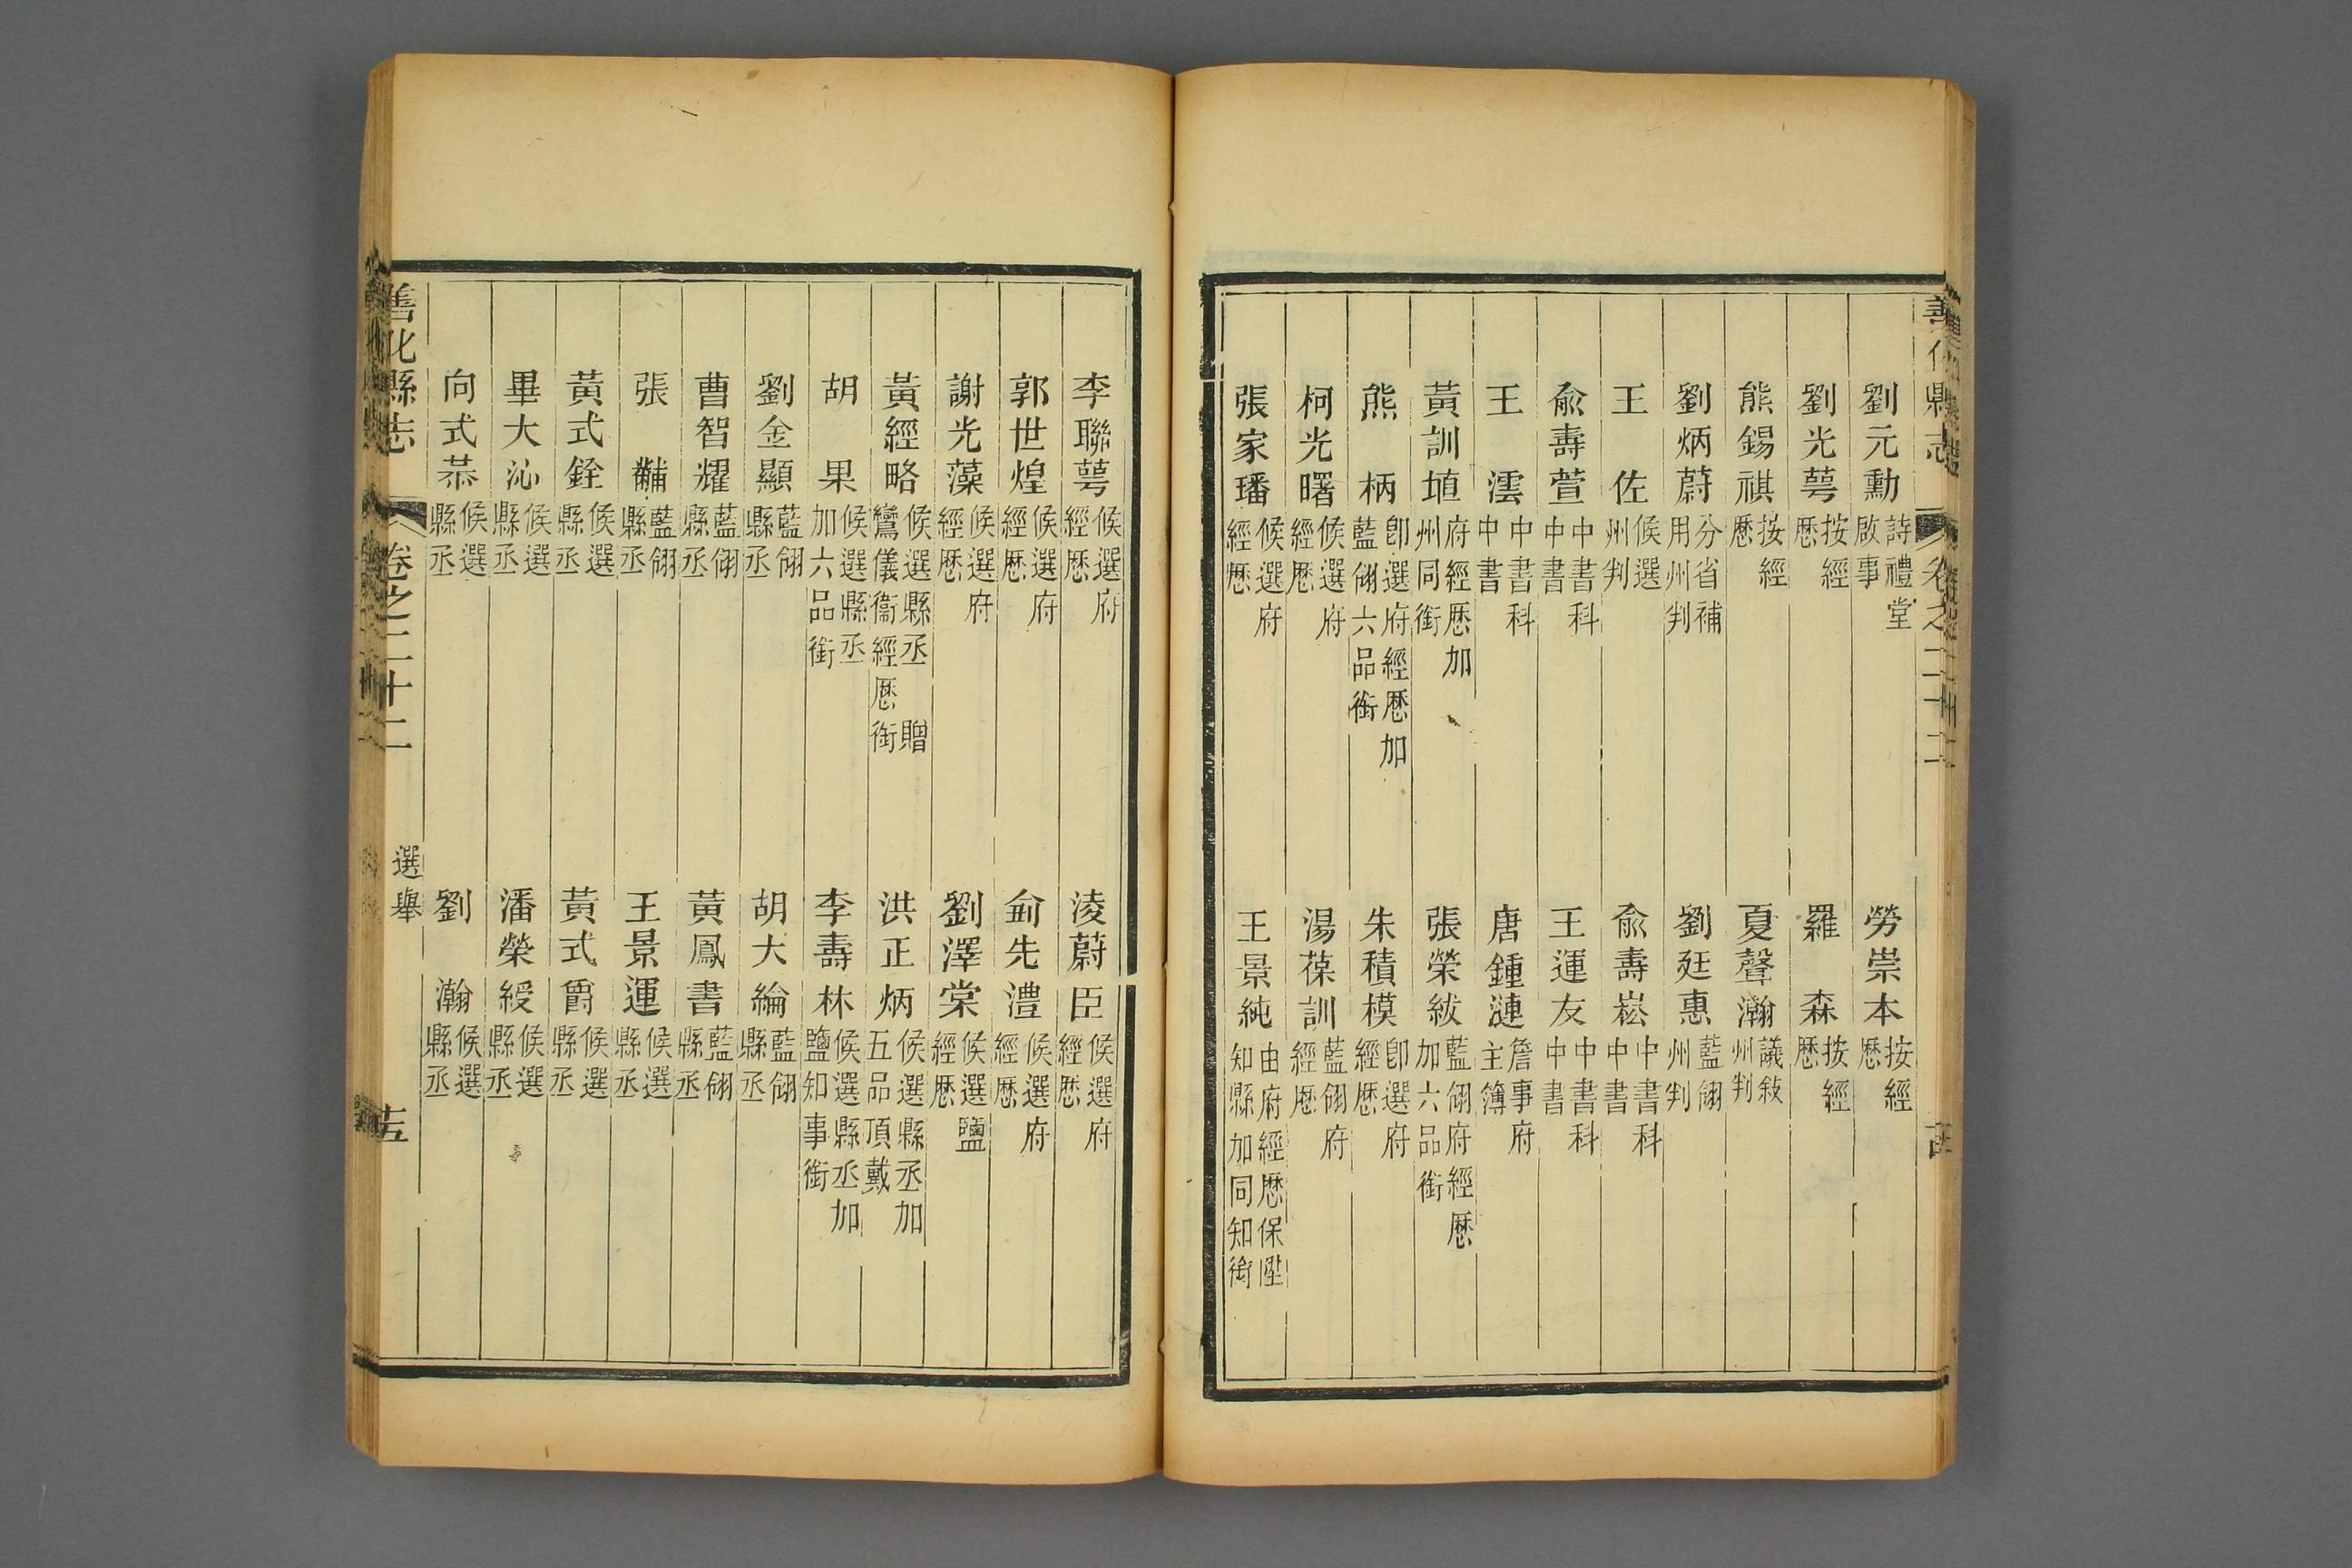 善化縣志 卷之二十二
劉元勳 詩禮堂啟事 勞崇本 按經歷
劉光萼 按經歷 羅森 按經歷
熊錫祺 按經歷 夏聲瀚 議敍州判
劉炳蔚 分省補用州判 劉廷惠 藍翎州判
王佐 候選州判 兪壽崧 中書科中書
兪壽萱 中書科中書 王運友 中書科中書
王澐 中書科中書 唐鍾漣 詹事府主簿
黃訓埴 府經歷加州同銜 張榮紱 藍翎府經歷加六品銜
熊柄 卽選府經歷加藍翎六品銜 朱積模 卽選府經歷
柯光曙 候選府經歷 湯葆訓 藍翎府經歷
張家璠 候選府經歷 王景純 由府經歷保陞知縣加同知銜
李聯萼 候選府經歷 淩蔚臣 候選府經歷
郭世煌 候選府經歷 俞先澧 候選府經歷
謝光藻 候選府經歷 劉澤棠 候選鹽經歷
黃經略 候選縣丞贈鑾儀衞經歷銜 洪正炳 候選縣丞加五品頂戴
胡果 候選縣丞加六品銜 李壽林 候選縣丞加鹽知事銜
劉金顯 藍翎縣丞 胡大綸 藍翎縣丞
曹智耀 藍翎縣丞 黃鳳書 藍翎縣丞
張黼 藍翎縣丞 王景運 候選縣丞
黃式銓 候選縣丞 黃式爵 候選縣丞
畢大沁 候選縣丞 潘榮綬 候選縣丞
向式恭 候選縣丞 劉瀚 候選縣丞
善化縣志 卷之二十二 選舉 十五